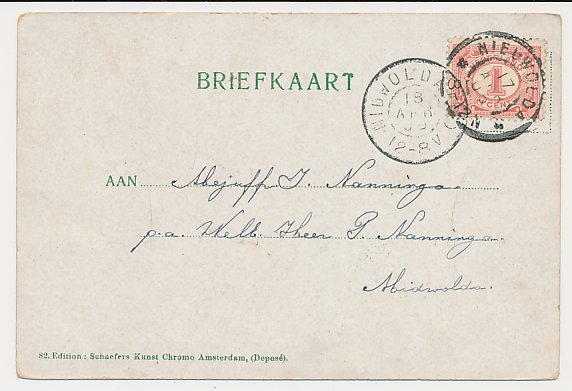 BRIEFKAART
NIEUWOLDA
17
MIDWOLDA
18
APR
12-8V
1
CENT
AAN Mejuff J. Nanninga
p.a. Welb. Heer P. Nanninga
Midwolda.
82. Edition: Schaefers Kunst Chromo Amsterdam, (Deposé).